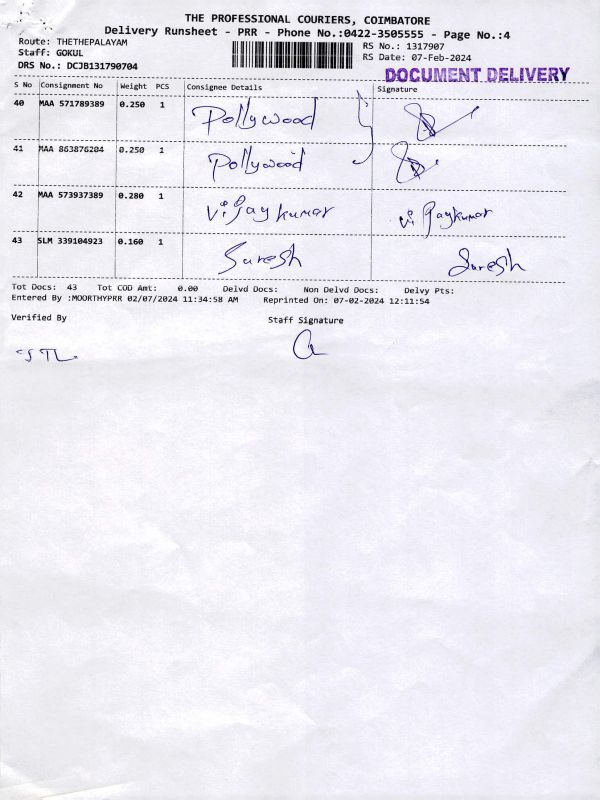 THE PROFESSIONAL COURIERS, COIMBATORE
Delivery Runsheet - PRR - Phone No.:0422-3505555 - Page No.:4
Route: THETHEPALAYAM
RS No.: 1317907
Staff: GOKUL
RS Date: 07-Feb-2024
DRS No.: DCJB131790704
DOCUMENT DELIVERY
S No Consignment No Weight PCS Consignee Details Signature
40 MAA 571789389 0.250 1 Pollywood
41 MAA 863876204 0.250 1 Pollywood
42 MAA 573937389 0.280 1 Vijaykumar Vijaykumar
43 SLM 339104923 0.160 1 Suresh Suresh
Tot Docs: 43 Tot COD Amt: 0.00 Delvd Docs: Non Delvd Docs: Delvy Pts:
Entered By :MOORTHYPRR 02/07/2024 11:34:58 AM Reprinted On: 07-02-2024 12:11:54
Verified By Staff Signature